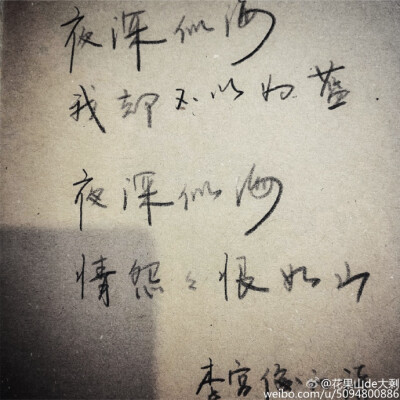 夜深似海
我却不以为蓝
夜深似海
情怨々恨如山
李宫俊
@花果山de大剩
weibo.com/u/5094800886